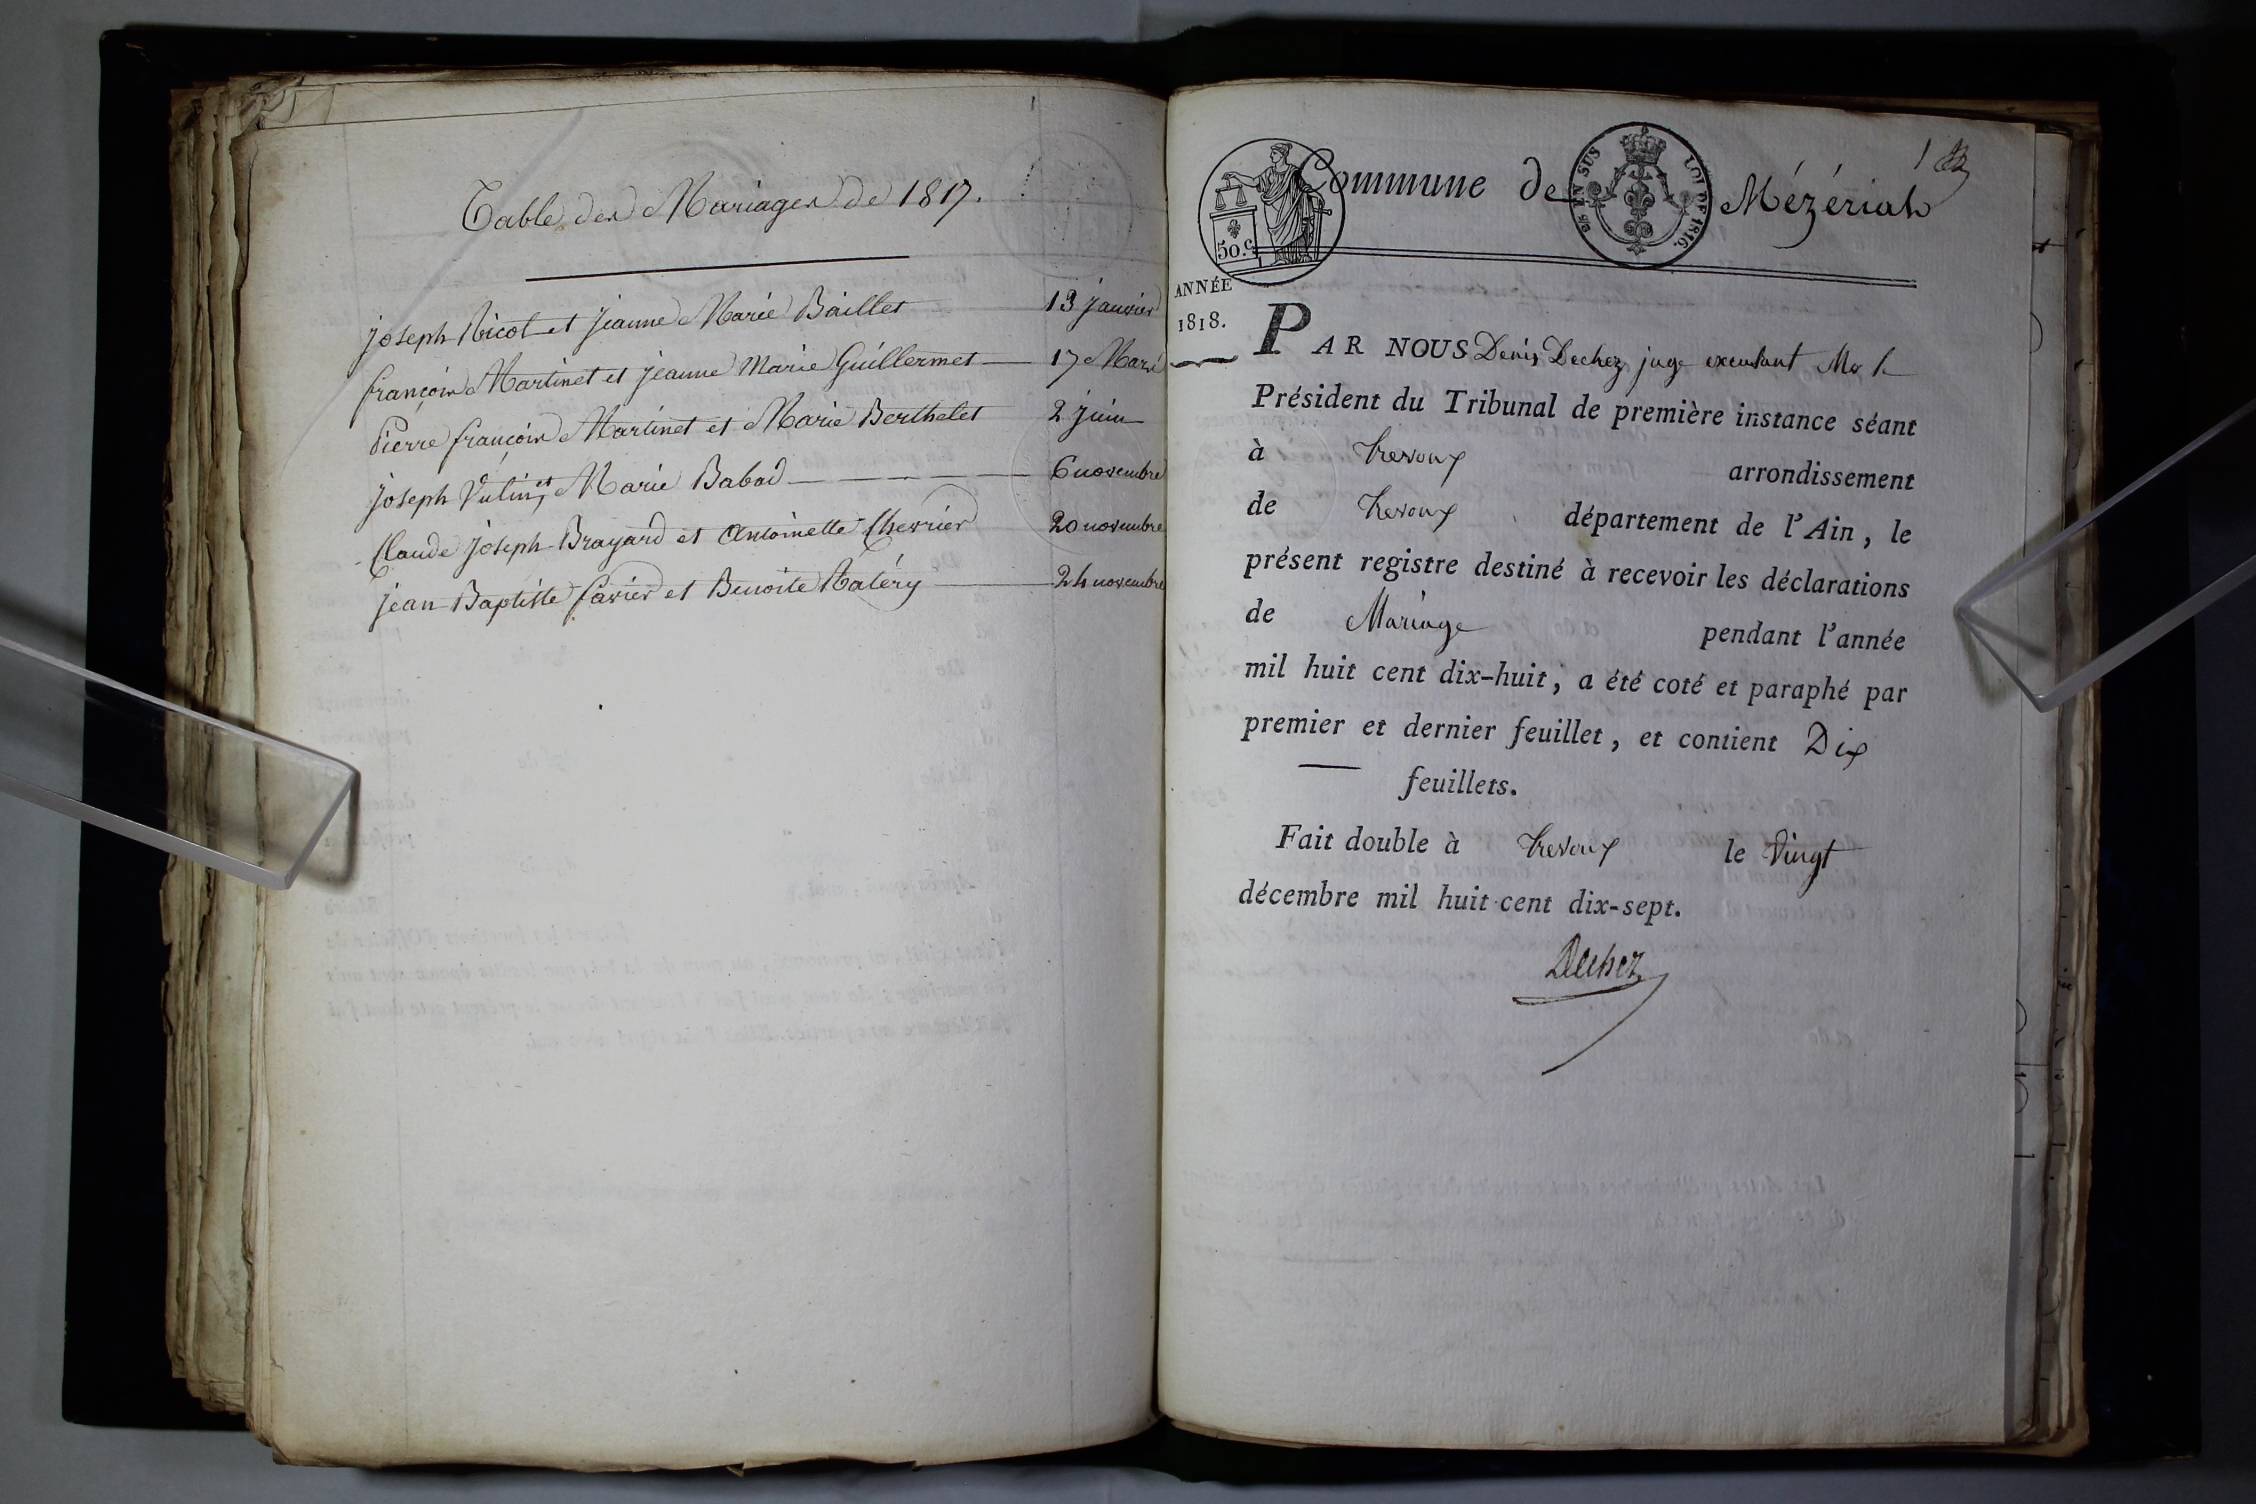 Table des Mariages de 1817.
joseph Nicol et Jeanne Marie Baillet 13 janvier
françois Martinet et jeanne Marie Guillermet 17 Mars
Pierre françois Martinet et Marie Berthelet 2 juin
joseph Vulin et Marie Babad 6 novembre
Claude joseph Brayard et Antoinette Chevrier 20 novembre
jean Baptiste favier et Benoite 24 novembre
1
Commune de Mézériat
50.c
EN SUS LOI DE 1816.
ANNÉE
1818.
PAR NOUS Denis Dechez juge Mr le
Président du Tribunal de première instance séant
à Trevoux arrondissement
de Trevoux département de l'Ain, le
présent registre destiné à recevoir les déclarations
de Mariage pendant l'année
mil huit cent dix-huit, a été coté et paraphé par
premier et dernier feuillet, et contient Dix
feuillets.
Fait double à Trevoux le Vingt
décembre mil huit cent dix-sept.
Dechez